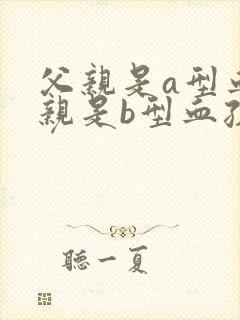 父親是a型血
親是b型血孩
聽一夏